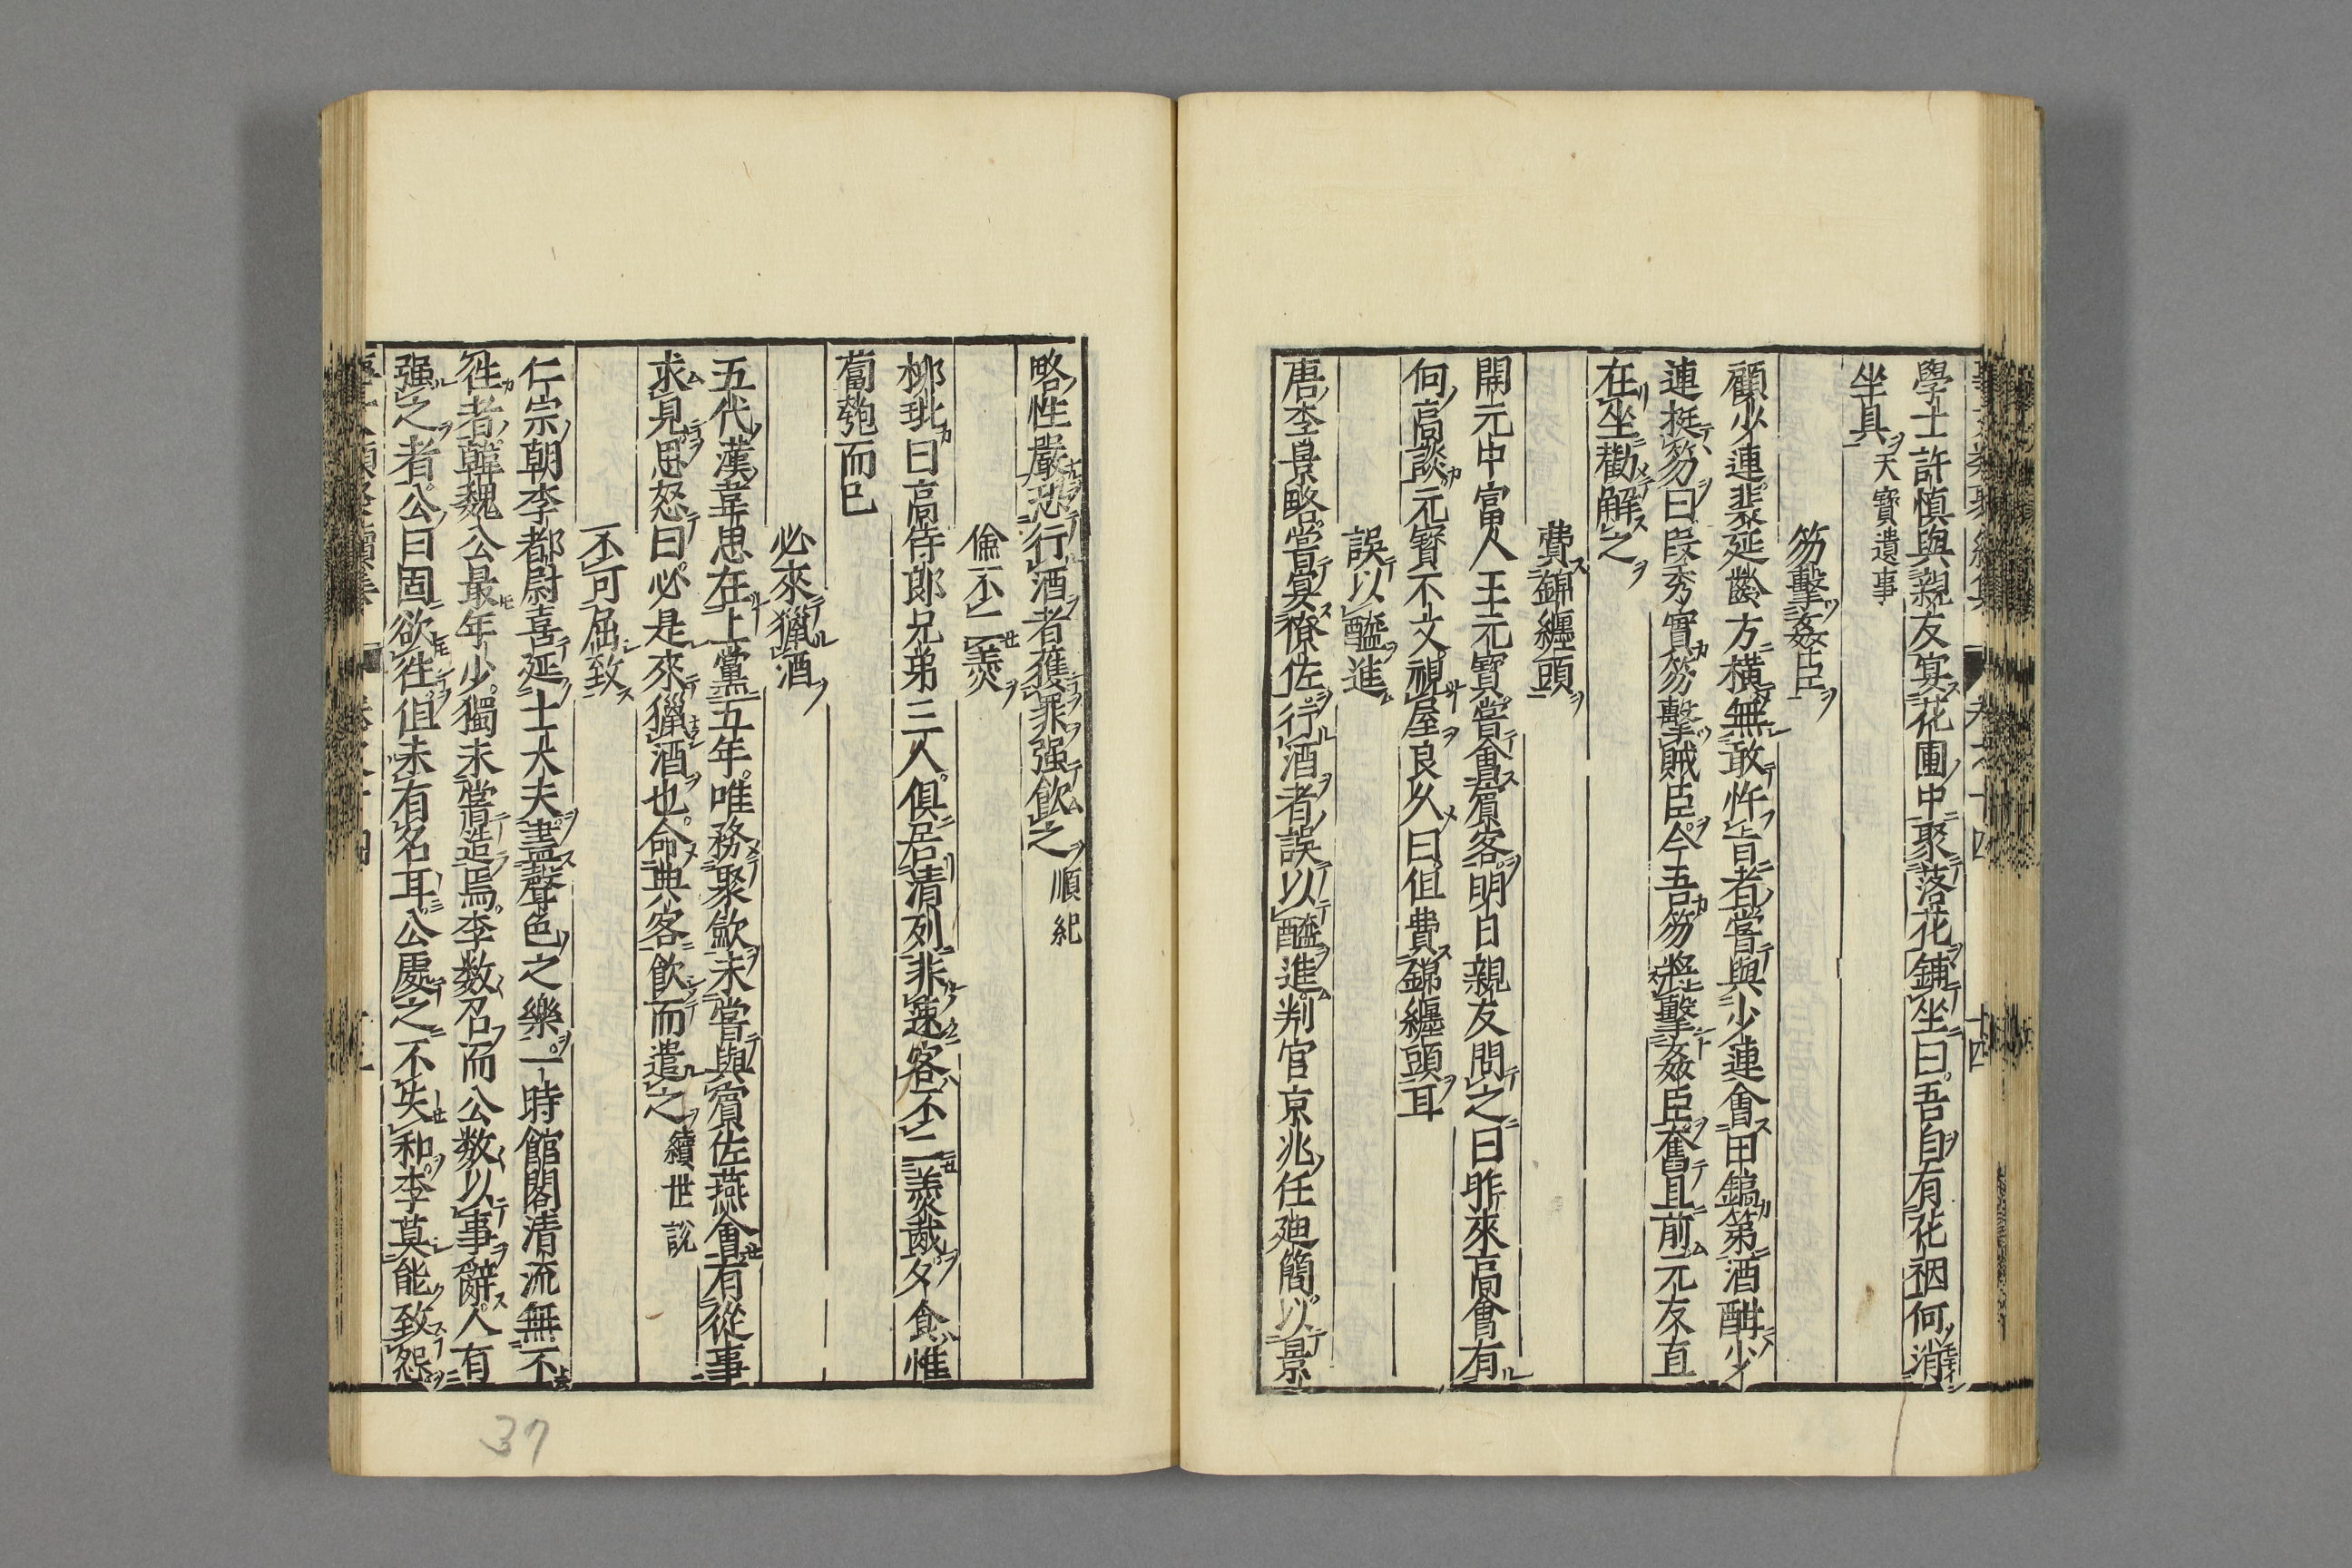 學士許愼與親友宴花圃中聚落花鋪坐曰吾自有花裀何消
坐具天寶遺事
笏擊姦臣
顧少連裴延齡方橫無敢忤旨者嘗與少連會田鎬第酒酣少
連挺笏曰段秀實笏擊賊臣今吾笏將擊姦臣奮且前元友直
在坐勸解之
費錦纏頭
開元中富人王元寳嘗會賓客明日親友問之曰昨來高會有
何高談元寳不文視屋良久曰但費錦纏頭耳
誤以醯進
唐李景略嘗宴僚佐行酒者誤以醯進判官京兆任廸簡以景
略性嚴恐行酒者獲罪强飮之順紀
儉不二羹
柳玭曰高侍郎兄弟三人俱居清列非速客不二羹胾夕食惟
蔔匏而已
必來獵酒
五代漢韋思在上黨五年唯務聚歛未嘗與賓佐燕會有從事
求見思怒曰必是來獵酒也命典客飮而遣之續世說
不可屈致
仁宗朝李都尉喜延士大夫盡聲色之樂一時館閣清流無不
徃者韓魏公最年少獨未嘗造焉李数召而公数以事辭人有
强之者公曰固欲徃但未有名耳公處之不失和李莫能致怨